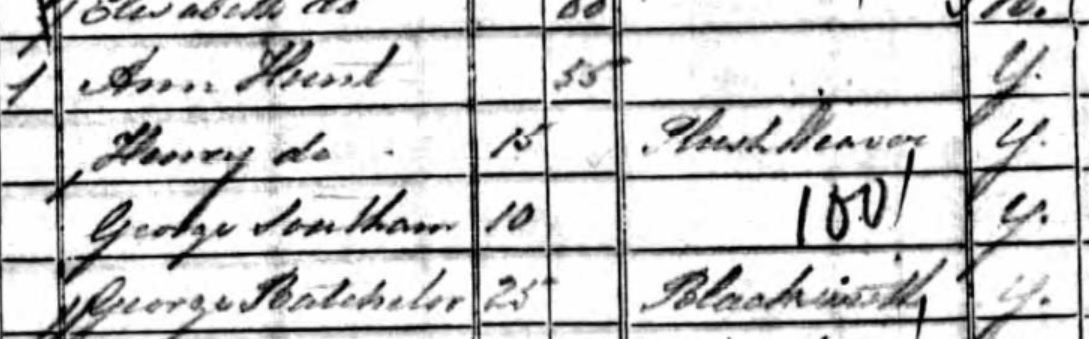 Elisabeth do 60 N.
1 Ann Hunt 55 Y.
Henry do 15 Plush Weaver Y.
George Southam 10 100 Y.
George Batchelor 25 Blacksmith Y.